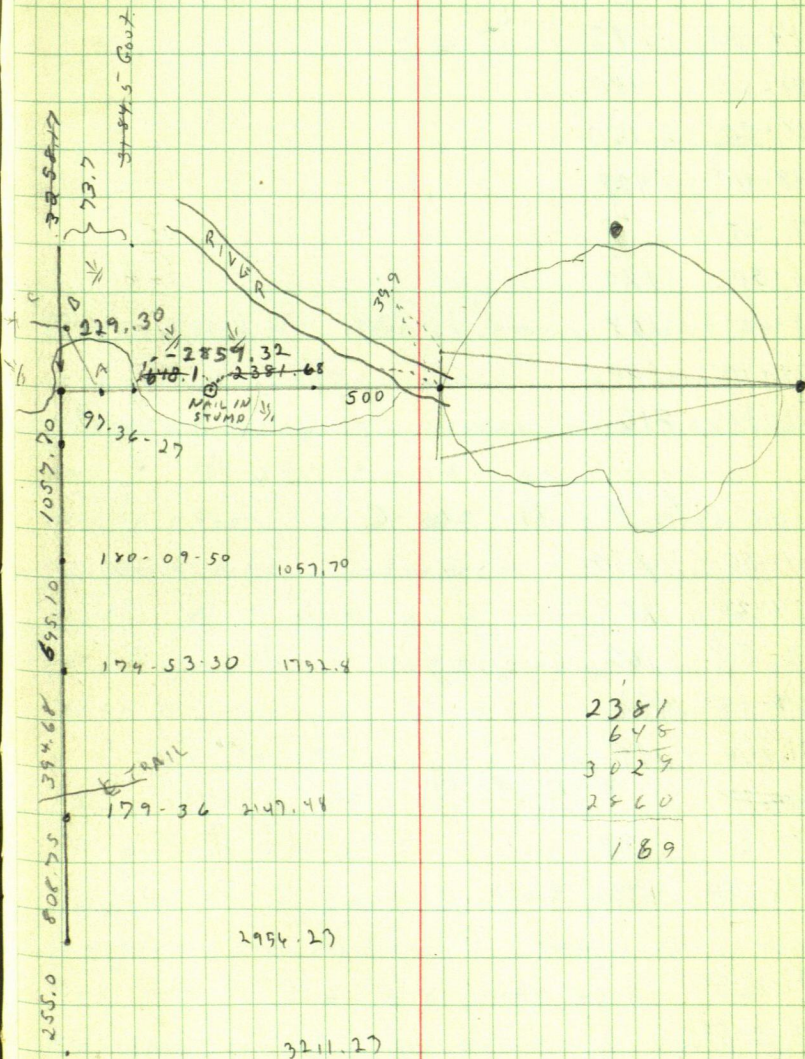 3184.5 Govt.
3258.17
73.7
RIVER
39.9
C
B
229.30
2859.32
A
648.1
2381.68
NAIL IN
STUMP
500
97-36-27
1057.70
180-09-50
1057.70
695.10
179-53-30
1752.8
394.68
TRAIL
179-36
2147.48
808.75
2956.23
255.0
3211.23
2381
648
3029
2860
189